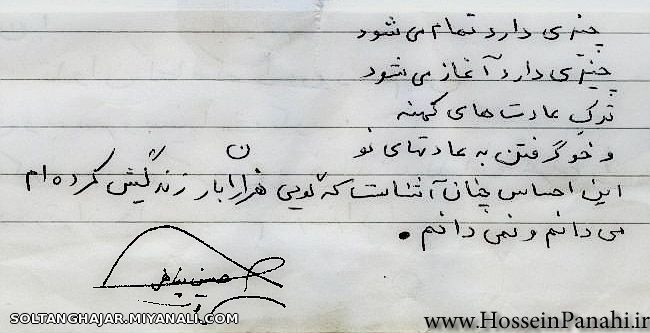 چیزی دارد تمام می شود
چیزی دارد آغاز می شود
ترک عادت های کهنه
و خو گرفتن به عادتهای نو
این احساس چنان آشناست که گویی هزاران بار زندگیش کرده ام
می دانم و نمی دانم .
حسین پناهی
SOLTANGHAJAR.MIYANALI.COM
www.HosseinPanahi.ir